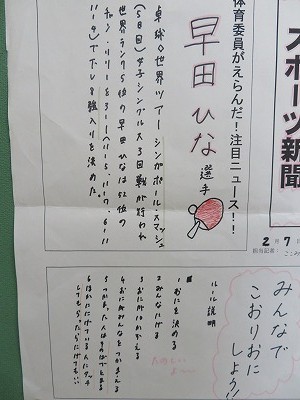 スポーツ新聞
2月7
担当記者:
体育委員がえらんだ!注目ニュース!!
早田ひな選手
卓球◇世界ツアーシンガポール・スマッシュ
(5日目)女子シングルス3回戦が行われ
世界ランク5位の早田ひなは52位の
11-9)で下し8強入りを決めた。
みんなで
こおりおに
しよう!!
ルール説明
1おにを決める
2みんなにげる
3おにがおいかける
4おにがみんなをつかまえる
5つかまった人はそのばでとまる
6ほかににげている人にタッチ
してもらったらにげてもいい